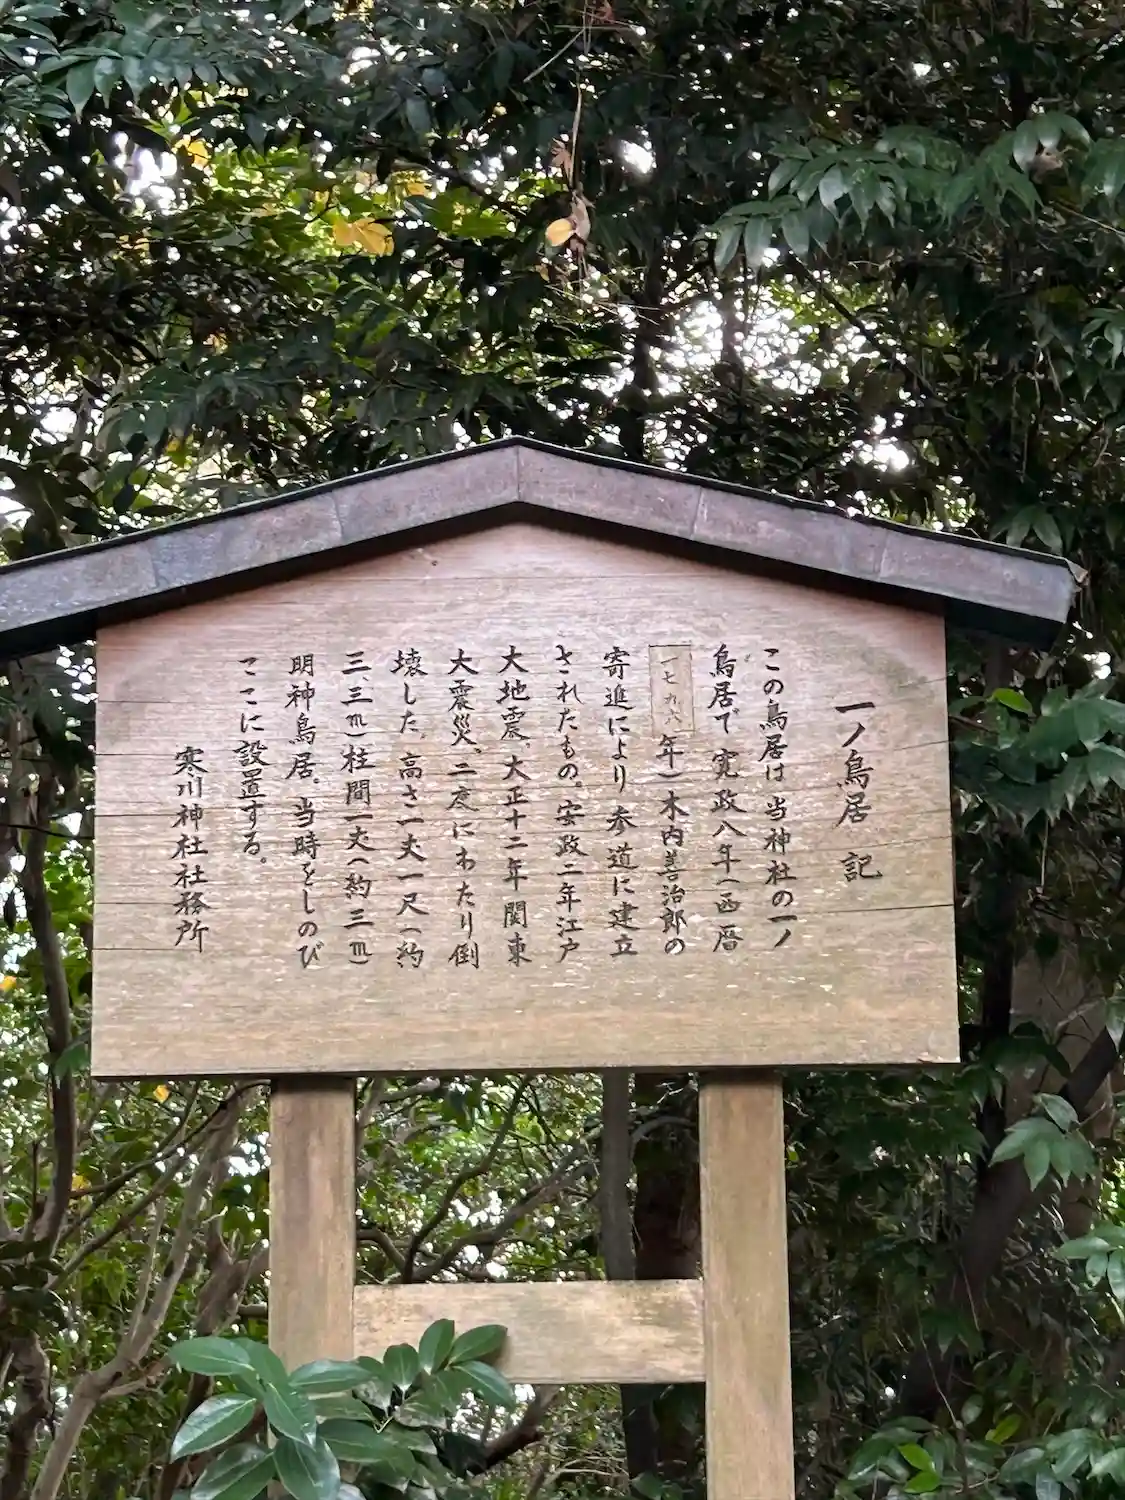 一ノ鳥居 記
この鳥居は当神社の一ノ
鳥居で寛政八年(西暦
一七九六年)木内善治郎の
寄進により参道に建立
されたもの。安政二年江戸
大地震、大正十二年関東
大震災、二度にわたり倒
壊した。高さ一丈一尺(約
三、三m)柱間一丈(約三m)
明神鳥居。当時をしのび
ここに設置する。
寒川神社社務所